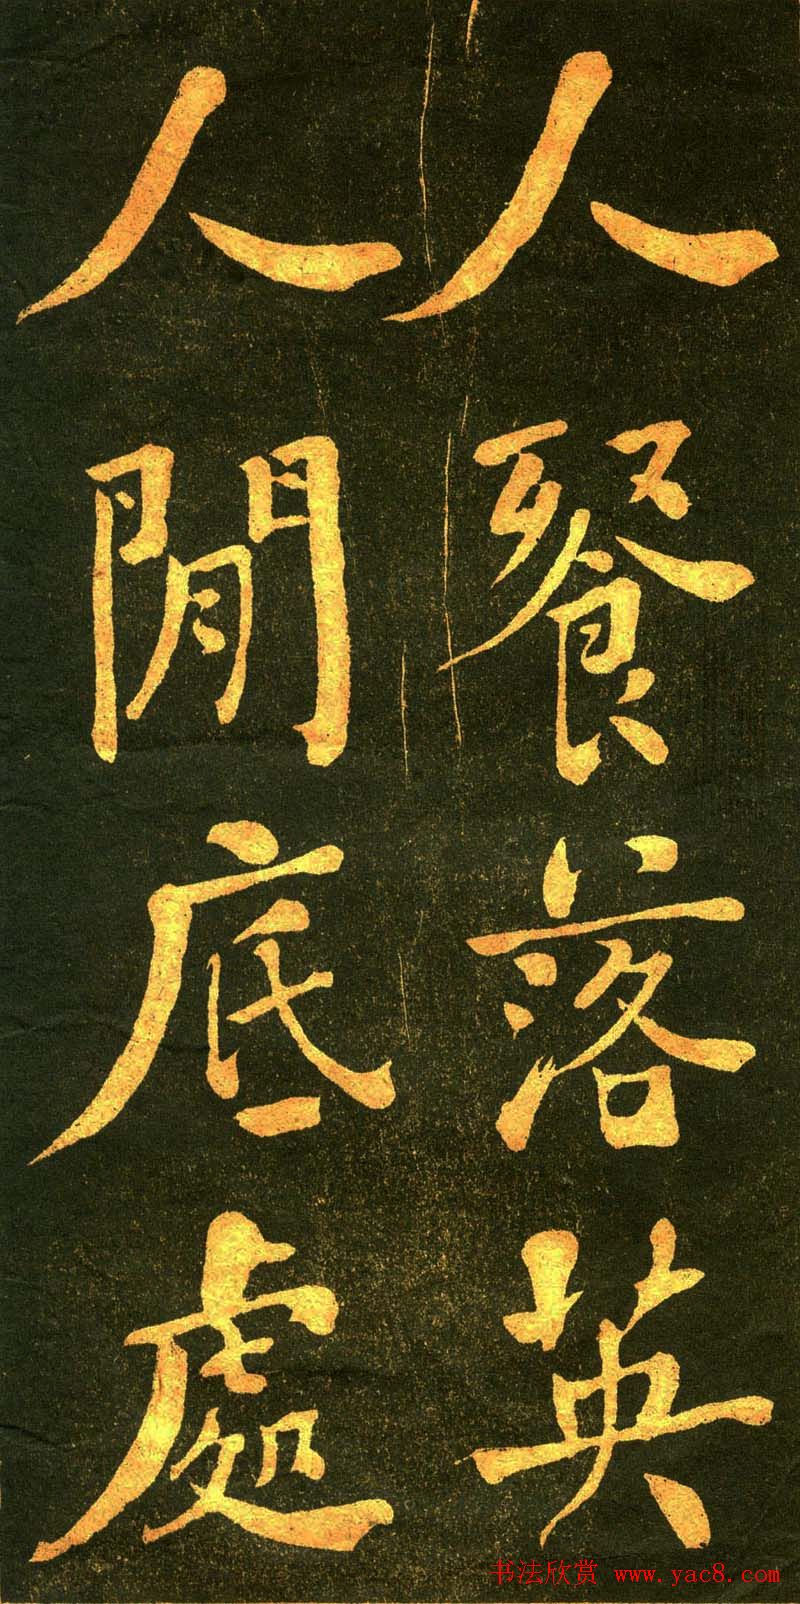 人餐落英
人閒底處
书法欣赏 www.yac8.com